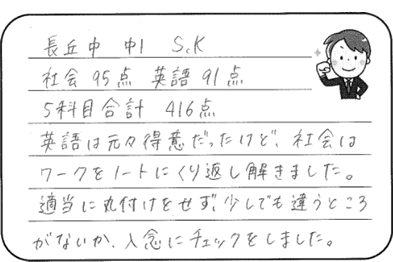 長丘中 中1 S.K
社会 95点 英語 91点
5科目合計 416点
英語は元々得意だったけど、社会は
ワークをノートにくり返し解きました。
適当に丸付けをせず、少しでも違うところ
がないか、入念にチェックをしました。